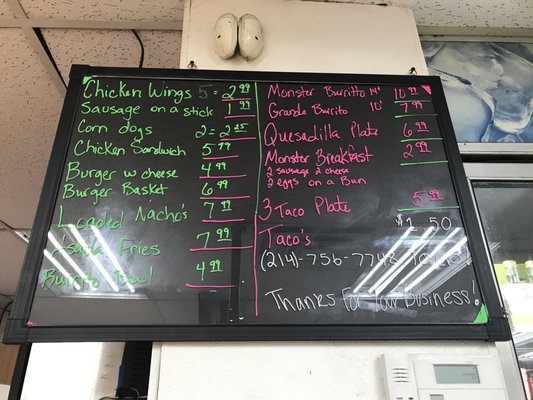 Chicken Wings 5 = 2.99
Sausage on a stick 1.99
Corn dogs 2 = 2.25
Chicken Sandwich 5.79
Burger w cheese 4.99
Burger Basket 6.99
Loaded Nacho's 7.99
Asada Fries 7.99
Burrito Bowl 4.99
Monster Burritto 14" 10.99
Grande Burrito 10" 7.99
Quesadilla Plate 6.99
Monster Breakfast 2.99
2 sausage 2 cheese
2 eggs on a Bun
3 Taco Plate 5.99
Taco's $1.50
(214)-756-7748
Thanks For Your Business!